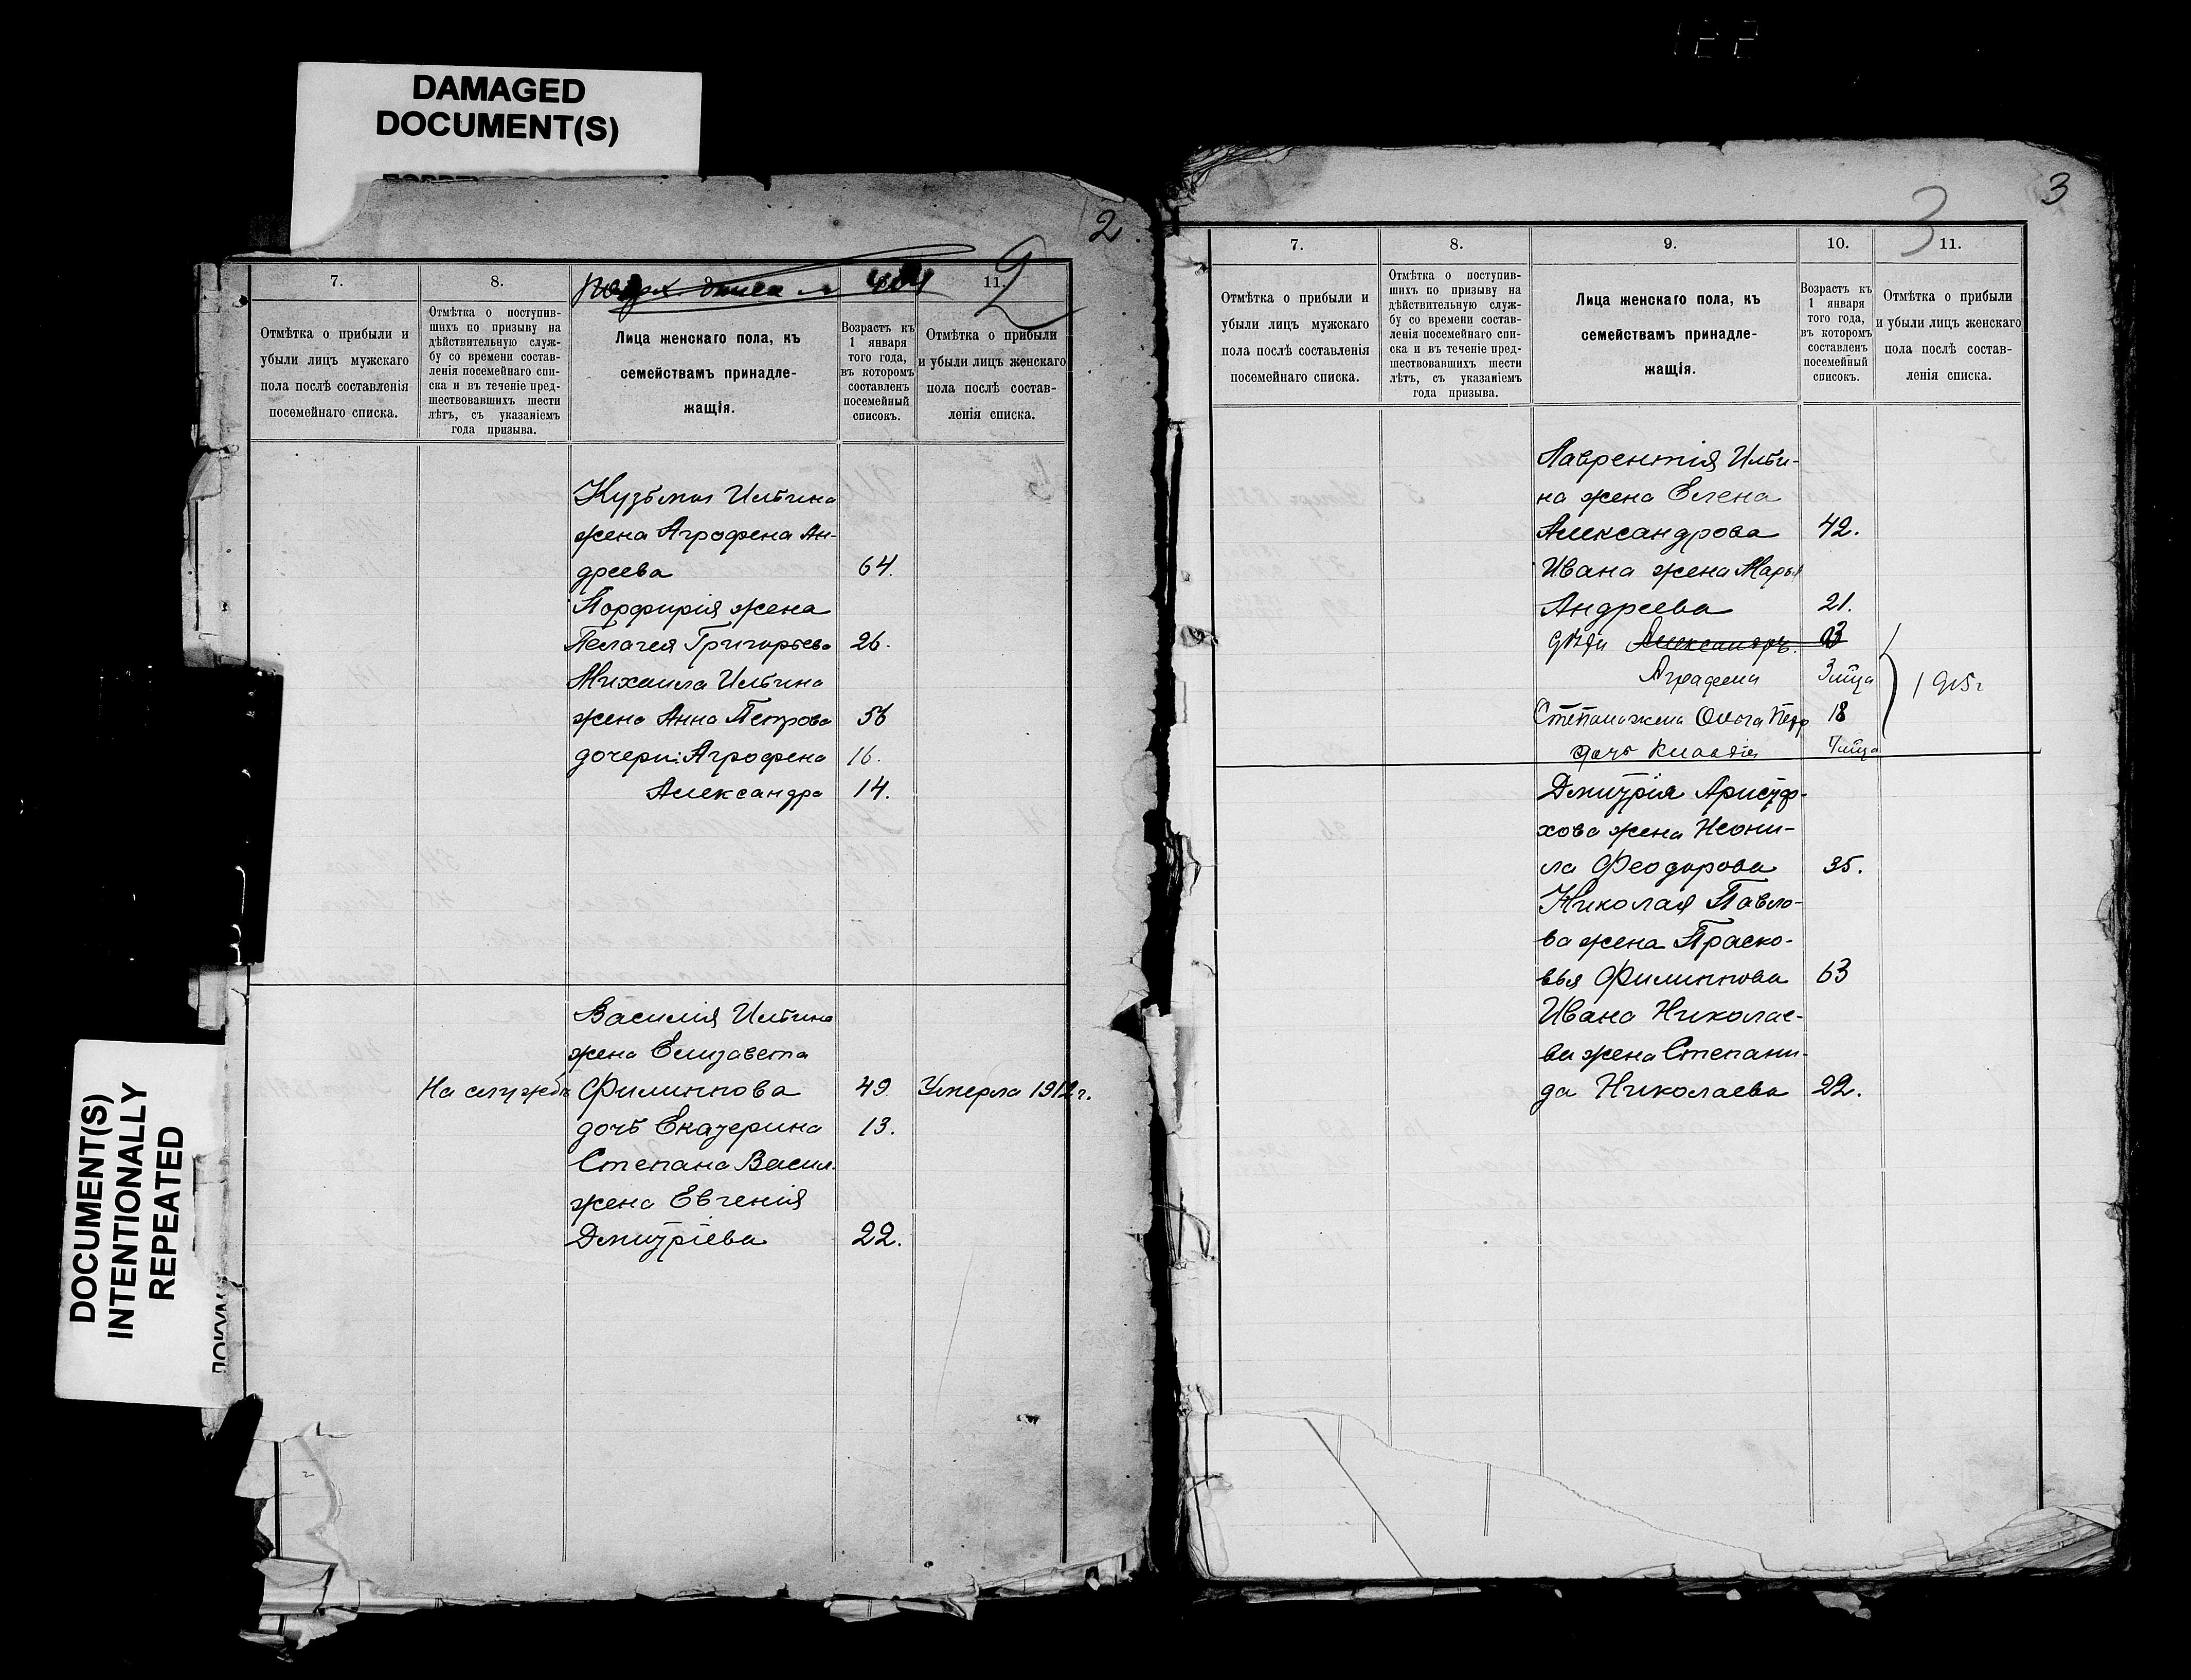 122
DAMAGED
DOCUMENT(S)
DOCUMENT(S)
INTENTIONALLY
REPEATED
2
2
7.
8.
11.
Отмѣтка о прибыли и
убыли лицъ мужскаго
пола послѣ составленія
посемейнаго списка.
Отмѣтка о поступив-
шихъ по призыву на
дѣйствительную служ-
бу со времени состав-
ленія посемейнаго спи-
ска и въ теченіе пред-
шествовавшихъ шести
лѣтъ, съ указаніемъ
года призыва.
Лица женскаго пола, къ
семействамъ принадле-
жащія.
Возрастъ къ
1 января
того года,
въ которомъ
составленъ
посемейный
списокъ.
Отмѣтка о прибыли
и убыли лицъ женскаго
пола послѣ состав-
ленія списка.
Кузьмы Ильина
жена Агрофена Ан-
дреева 64.
Порфирія жена
Пелагея Григорьева 26.
Михаила Ильина
жена Анна Петрова 56
дочери: Агрофена 16.
Александра 14.
Василія Ильина
жена Елизавета
На службѣ Филиппова 49. Умерла 1912 г.
дочь Екатерина 13.
Степана Васил.
жена Евгенія
Дмитріева 22.
3
3
7.
8.
9.
10.
11.
Отмѣтка о прибыли и
убыли лицъ мужскаго
пола послѣ составленія
посемейнаго списка.
Отмѣтка о поступив-
шихъ по призыву на
дѣйствительную служ-
бу со времени состав-
ленія посемейнаго спи-
ска и въ теченіе пред-
шествовавшихъ шести
лѣтъ, съ указаніемъ
года призыва.
Лица женскаго пола, къ
семействамъ принадле-
жащія.
Возрастъ къ
1 января
того года,
въ которомъ
составленъ
посемейный
списокъ.
Отмѣтка о прибыли
и убыли лицъ женскаго
пола послѣ состав-
ленія списка.
Лаврентія Ильи-
на жена Елена
Александрова 42.
Ивана жена Марья
Андреева 21.
дѣти Александръ
Аграфена 3 мѣца
1915 г
Степана жена Ольга Петр 18
дочь Клавдія 7 мѣца
Дмитрія Аристар-
хова жена Неони-
ла Феодорова 35.
Николая Павло-
ва жена Праско-
вья Филиппова 63
Ивана Николае-
ва жена Степани-
да Николаева 22.